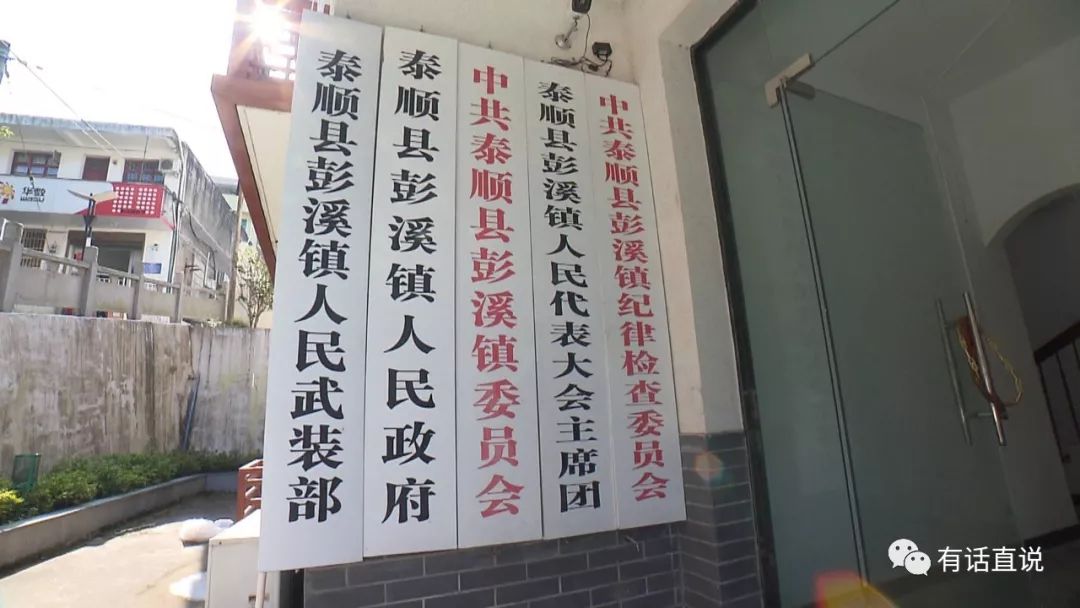 泰顺县彭溪镇人民武装部
泰顺县彭溪镇人民政府
中共泰顺县彭溪镇委员会
泰顺县彭溪镇人民代表大会主席团
中共泰顺县彭溪镇纪律检查委员会
华数
有话直说